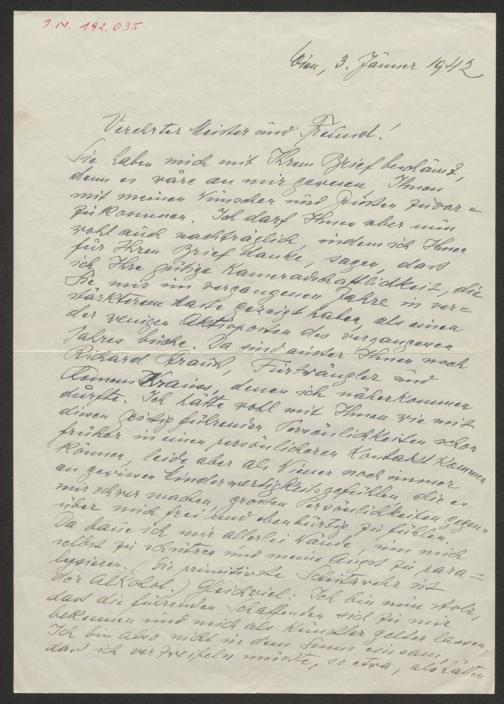 I.N. 192.035
Wien, 3. Jänner 1942
Verehrter Meister und Freund!
Sie haben mich mit Ihrem Brief beschämt,
denn es wäre an mir gewesen, Ihnen
mit meinen Wünschen und Grüßen zuvor=
zukommen. Ich darf Ihnen aber nun
wohl auch nachträglich, indem ich Ihnen
für Ihren Brief danke, sagen, dass
ich Ihre gütige Kameradschaftlichkeit, die
Sie mir im vergangenen Jahre in ver=
stärkterem Maße gezeigt haben, als einen
der wenigen Aktivposten des vergangenen
Jahres buche. Da sind ausser Ihnen noch
Richard Strauß, Furtwängler und
Klemens Krauss, denen ich näherkommen
durfte. Ich hätte wohl mit Ihnen wie mit
diesen geistig führenden Persönlichkeiten schon
früher in einen persönlicheren Kontakt kommen
können, leide aber als Wiener noch immer
an gewissen Minderwertigkeitsgefühlen, die es
mir schwer machen, großen Persönlichkeiten gegen=
über mich frei und ebenbürtig zu fühlen.
Da baue ich mir allerlei Wände, um mich
selbst zu schützen und meine Angst zu para=
lysieren. (Die primitivste Schutzwehr ist
der Alkohol.) Gleichviel: Ich bin nun stolz,
dass die führenden Schaffenden sich zu mir
bekennen und mich als Künstler gelten lassen.
Ich bin also nicht in dem Sinne einsam,
dass ich verzweifeln müsste, so etwa, als hätten